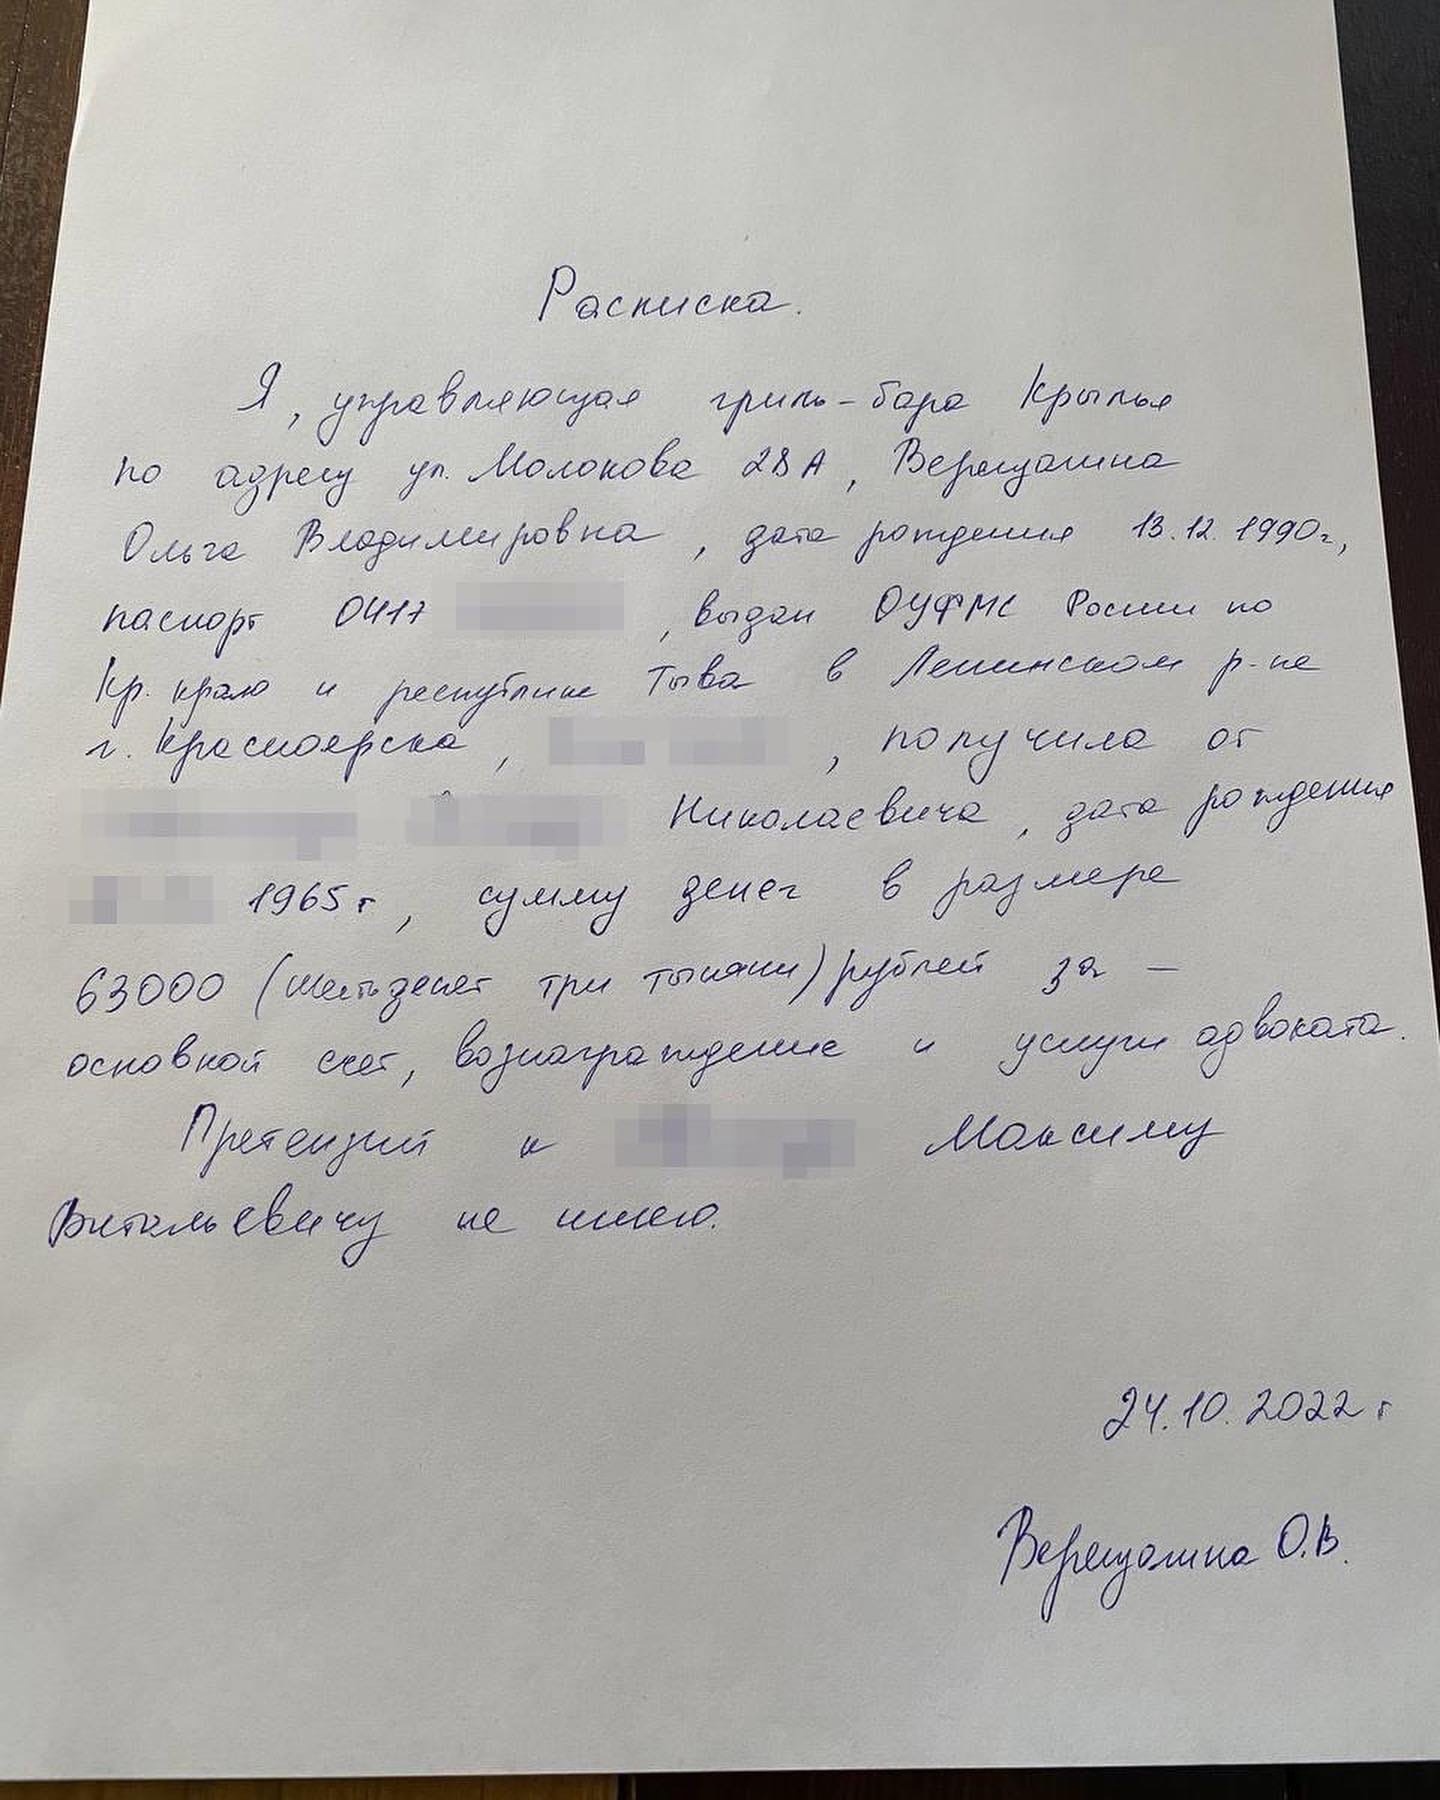 Расписка.
Я, управляющая гриль-бара Крылья
по адресу ул. Молокова 28А, Верещагина
Ольга Владимировна, дата рождения 13.12.1990г,
паспорт 0417 , выдан ОУФМС России по
Кр. краю и республике Тыва в Ленинском р-не
г. Красноярска, , получила от
Николаевича, дата рождения
1965г, сумму денег в размере
63000 (шестьдесят три тысячи) рублей за -
основной счет, вознаграждение и услуги адвоката.
Претензий к Максиму
Витальевичу не имею.
24.10.2022 г
О.В.